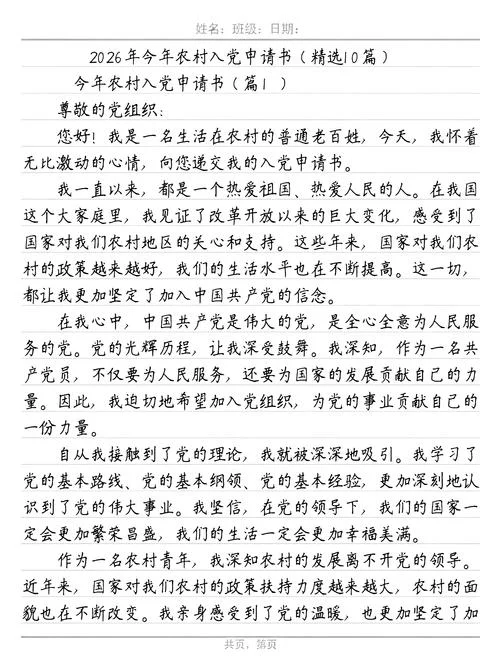 姓名：班级：日期：
2026年今年农村入党申请书（精选10篇）
今年农村入党申请书（篇1 ）
尊敬的党组织：
您好！我是一名生活在农村的普通老百姓，今天，我怀着
无比激动的心情，向您递交我的入党申请书。
我一直以来，都是一个热爱祖国、热爱人民的人。在我国
这个大家庭里，我见证了改革开放以来的巨大变化，感受到了
国家对我们农村地区的关心和支持。这些年来，国家对我们农
村的政策越来越好，我们的生活水平也在不断提高。这一切，
都让我更加坚定了加入中国共产党的信念。
在我心中，中国共产党是伟大的党，是全心全意为人民服
务的党。党的光辉历程，让我深受鼓舞。我深知，作为一名共
产党员，不仅要为人民服务，还要为国家的发展贡献自己的力
量。因此，我迫切地希望加入党组织，为党的事业贡献自己的
一份力量。
自从我接触到了党的理论，我就被深深地吸引。我学习了
党的基本路线、党的基本纲领、党的基本经验，更加深刻地认
识到了党的伟大事业。我坚信，在党的领导下，我们的国家一
定会更加繁荣昌盛，我们的生活一定会更加幸福美满。
作为一名农村青年，我深知农村的发展离不开党的领导。
近年来，国家对我们农村的政策扶持力度越来越大，农村的面
貌也在不断改变。我亲身感受到了党的温暖，也更加坚定了加
共页，第页